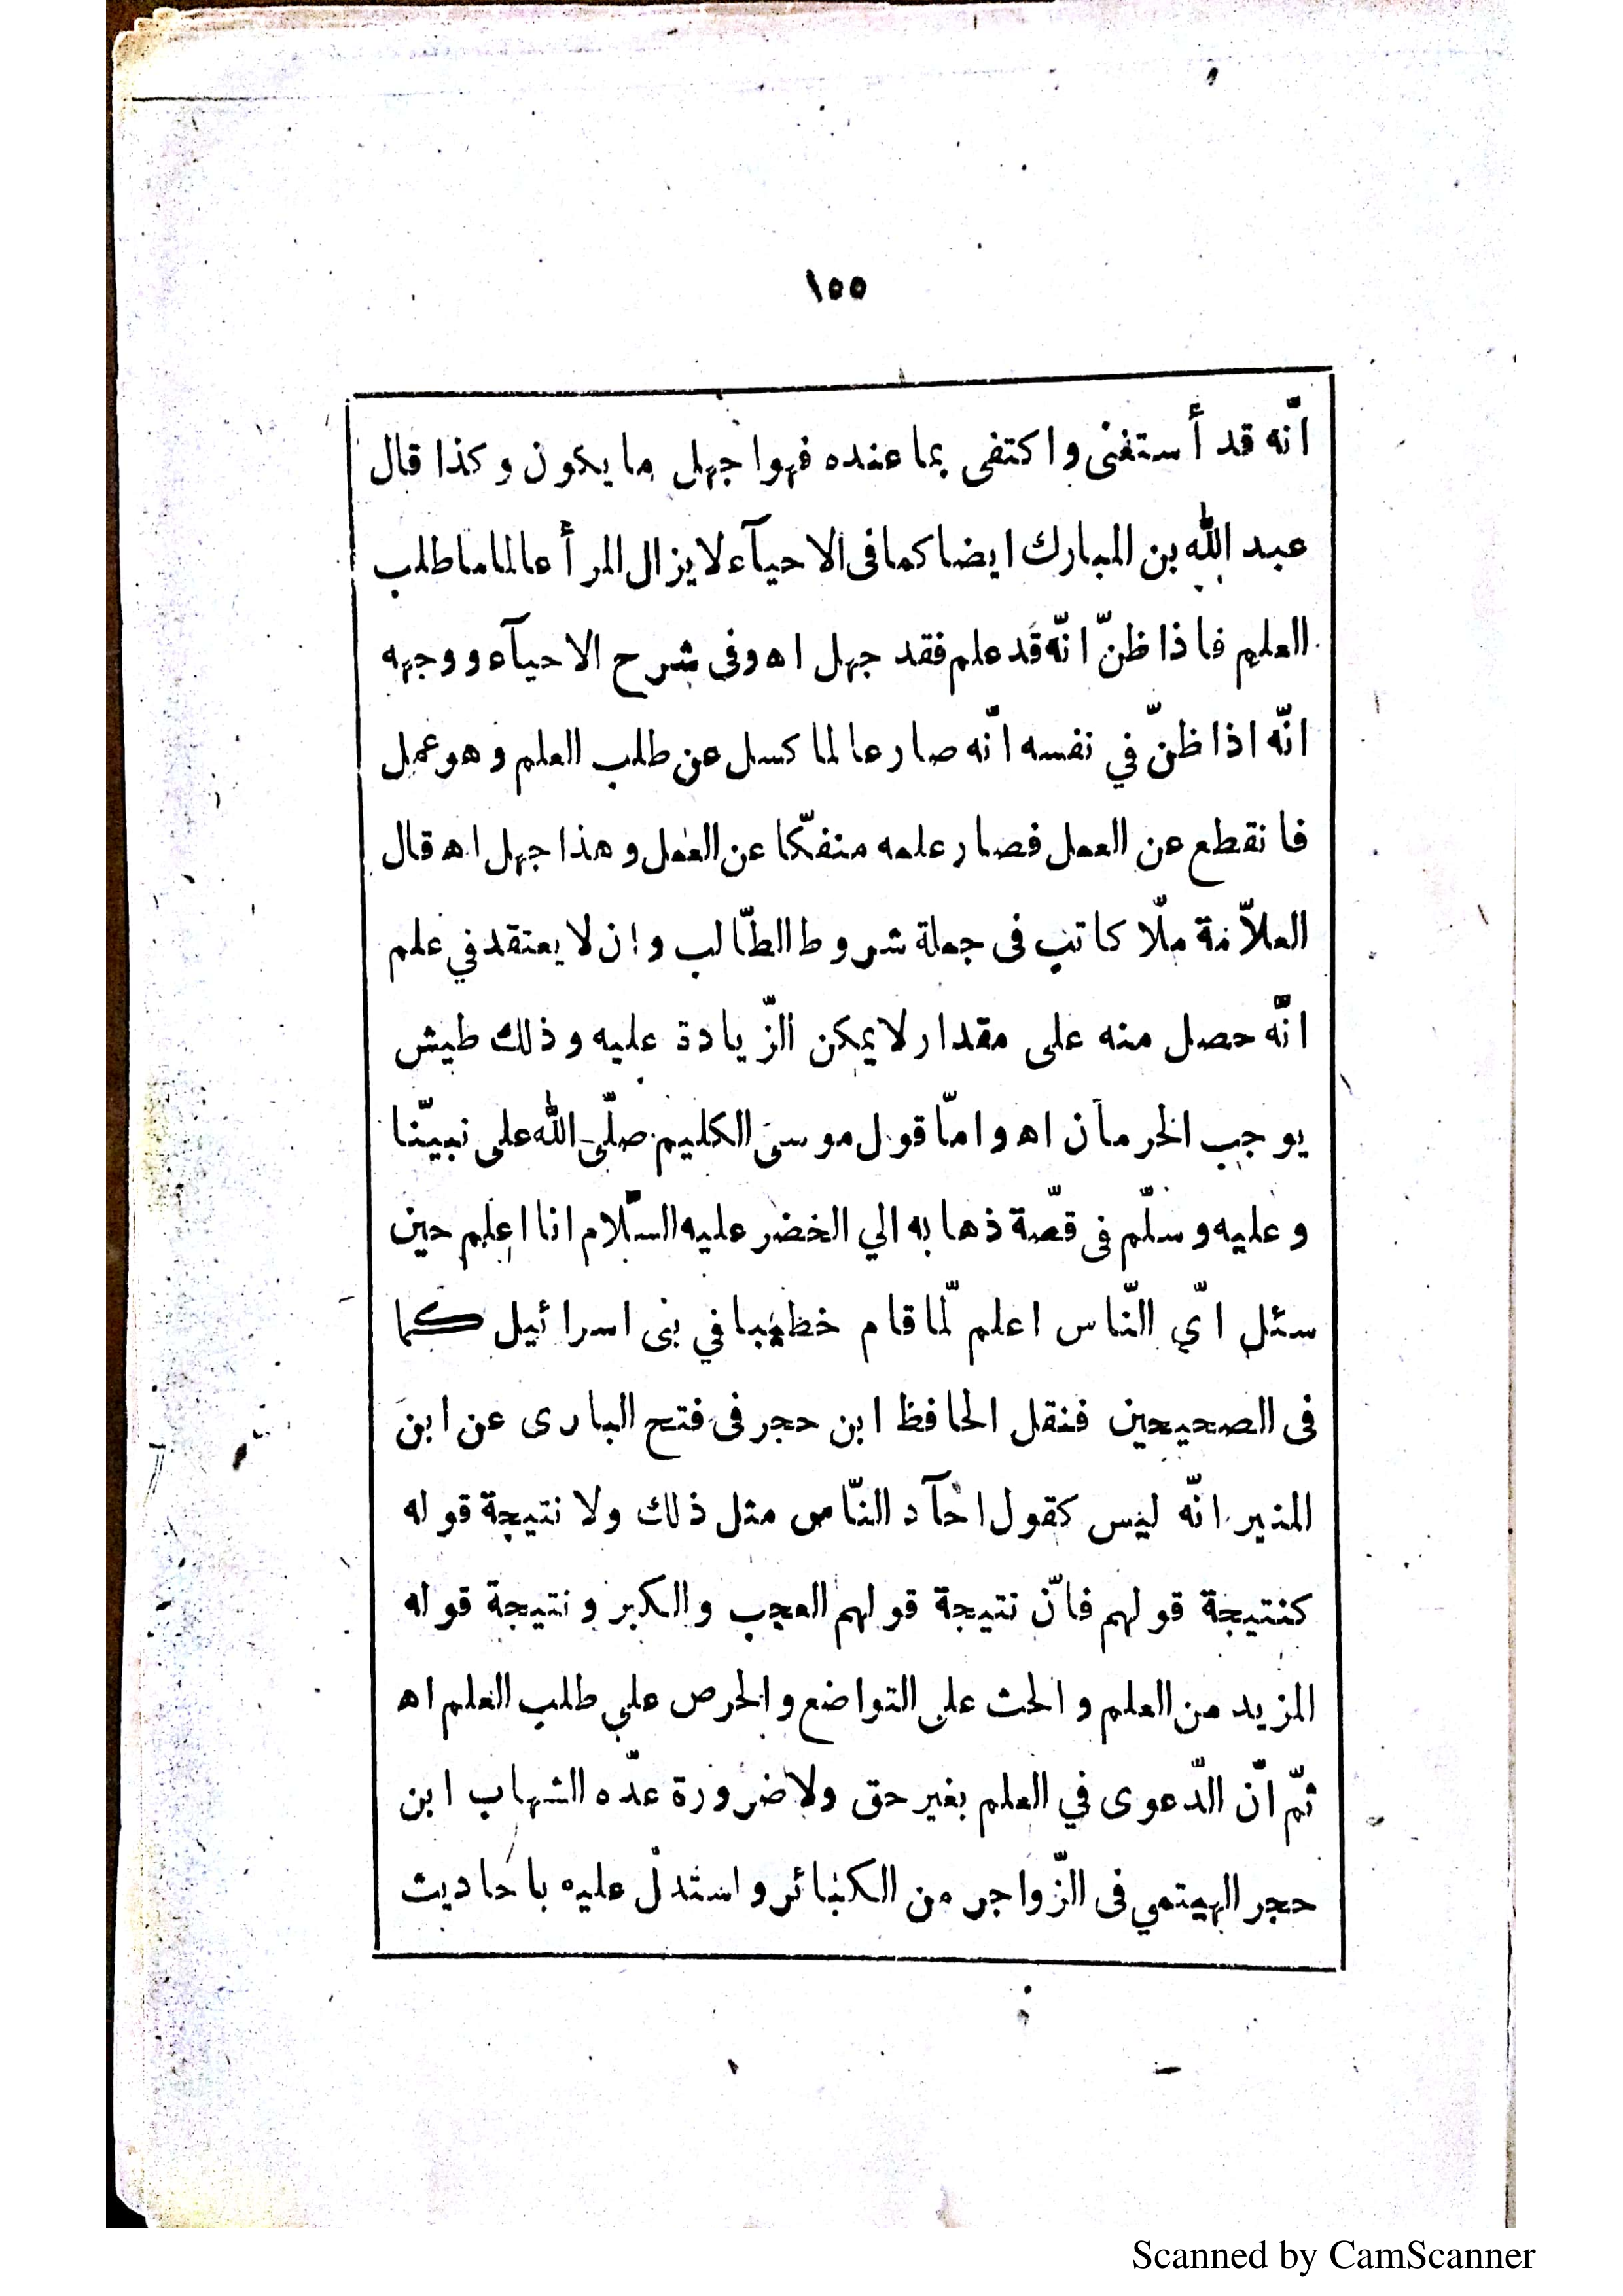 ١٥٥
انّه قد أستغنى واكتفى بما عنده فهوا جهل ما يكون وكذا قال
عبد الله بن المبارك ايضا كما فى الاحيآء لا يزال المرأ عالما ما طلب
العلم فاذا ظنّ انّه قد علم فقد جهل اه وفى شرح الاحيآء ووجهه
انّه اذا ظنّ في نفسه انّه صار عالما كسل عن طلب العلم وهو عمل
فانقطع عن العمل فصار علمه منفكّا عن العمل وهذا جهل اه قال
العلاّمة ملّا كاتب فى جملة شروط الطّالب وان لا يعتقد في علم
انّه حصل منه على مقدار لا يمكن الزّيادة عليه وذلك طيش
يوجب الحرمان اه وامّا قول موسى الكليم صلّى الله على نبيّنا
وعليه وسلّم فى قصّة ذهابه الي الخضر عليه السّلام انا اعلم حين
سئل ايّ النّاس اعلم لمّا قام خطيبا في بنى اسرائيل كما
فى الصحيحين فنقل الحافظ ابن حجر فى فتح البارى عن ابن
المنير انّه ليس كقول احآد النّاس مثل ذلك ولا نتيجة قوله
كنتيجة قولهم فانّ نتيجة قولهم العجب والكبر ونتيجة قوله
المزيد من العلم والحث على التواضع والحرص علي طلب العلم اه
ثمّ انّ الدّعوى في العلم بغير حق ولا ضرورة عدّه الشهاب ابن
حجر الهيتمي فى الزّواجر من الكبائر واستدلّ عليه باحاديث
Scanned by CamScanner